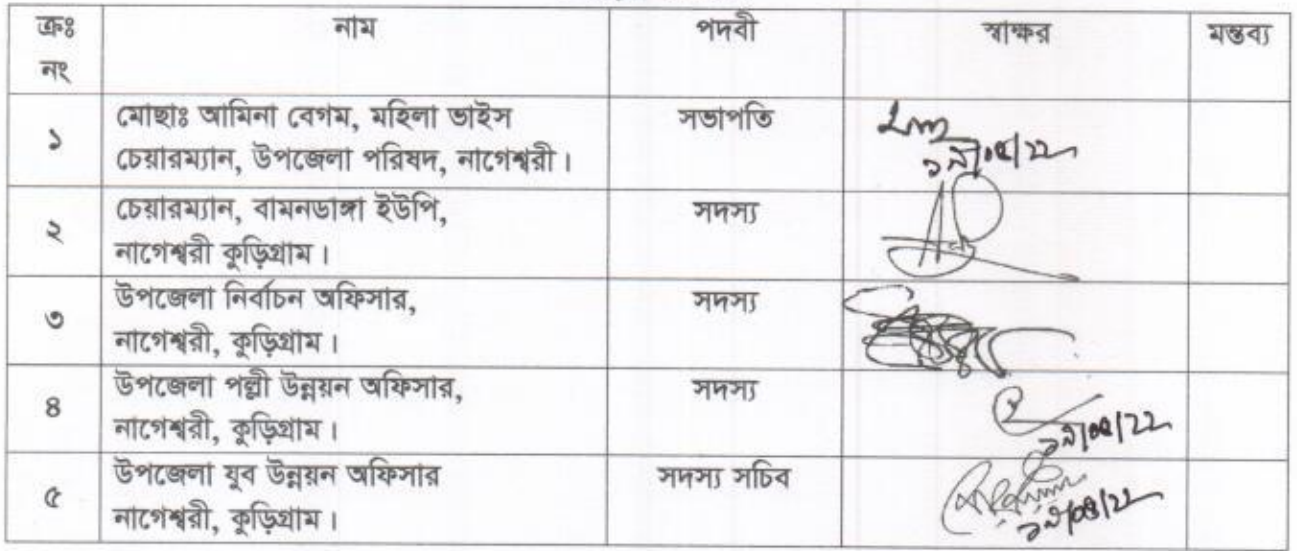 ক্রঃ নং নাম পদবী স্বাক্ষর মন্তব্য
১ মোছাঃ আমিনা বেগম, মহিলা ভাইস
চেয়ারম্যান, উপজেলা পরিষদ, নাগেশ্বরী। সভাপতি
২ চেয়ারম্যান, বামনডাঙ্গা ইউপি,
নাগেশ্বরী কুড়িগ্রাম। সদস্য
৩ উপজেলা নির্বাচন অফিসার,
নাগেশ্বরী, কুড়িগ্রাম। সদস্য
৪ উপজেলা পল্লী উন্নয়ন অফিসার,
নাগেশ্বরী, কুড়িগ্রাম। সদস্য
৫ উপজেলা যুব উন্নয়ন অফিসার
নাগেশ্বরী, কুড়িগ্রাম। সদস্য সচিব